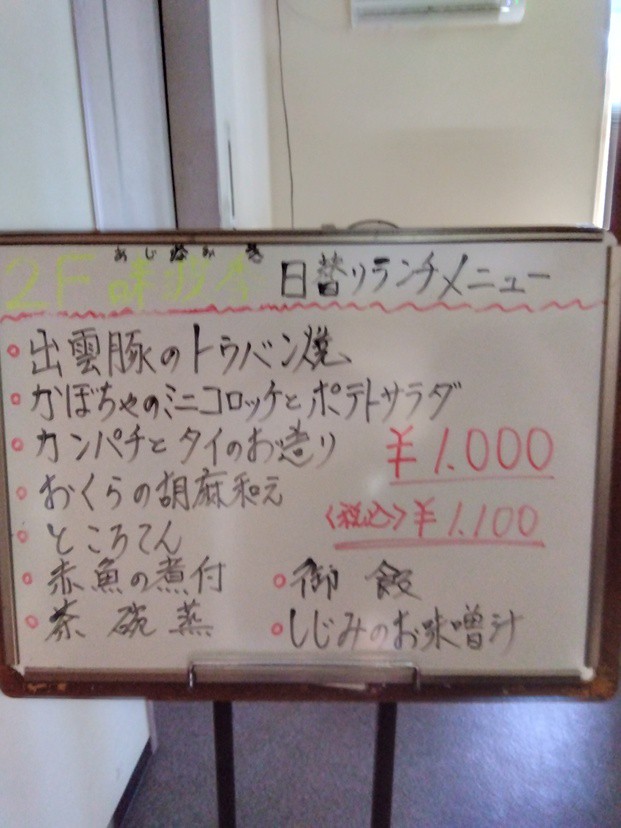 2F 日替りランチメニュー
出雲豚のトウバン焼
かぼちゃのミニコロッケとポテトサラダ
カンパチとタイのお造り
¥1.000
おくらの胡麻和え
<税込>¥1.100
ところてん
赤魚の煮付
御飯
茶碗蒸
しじみのお味噌汁